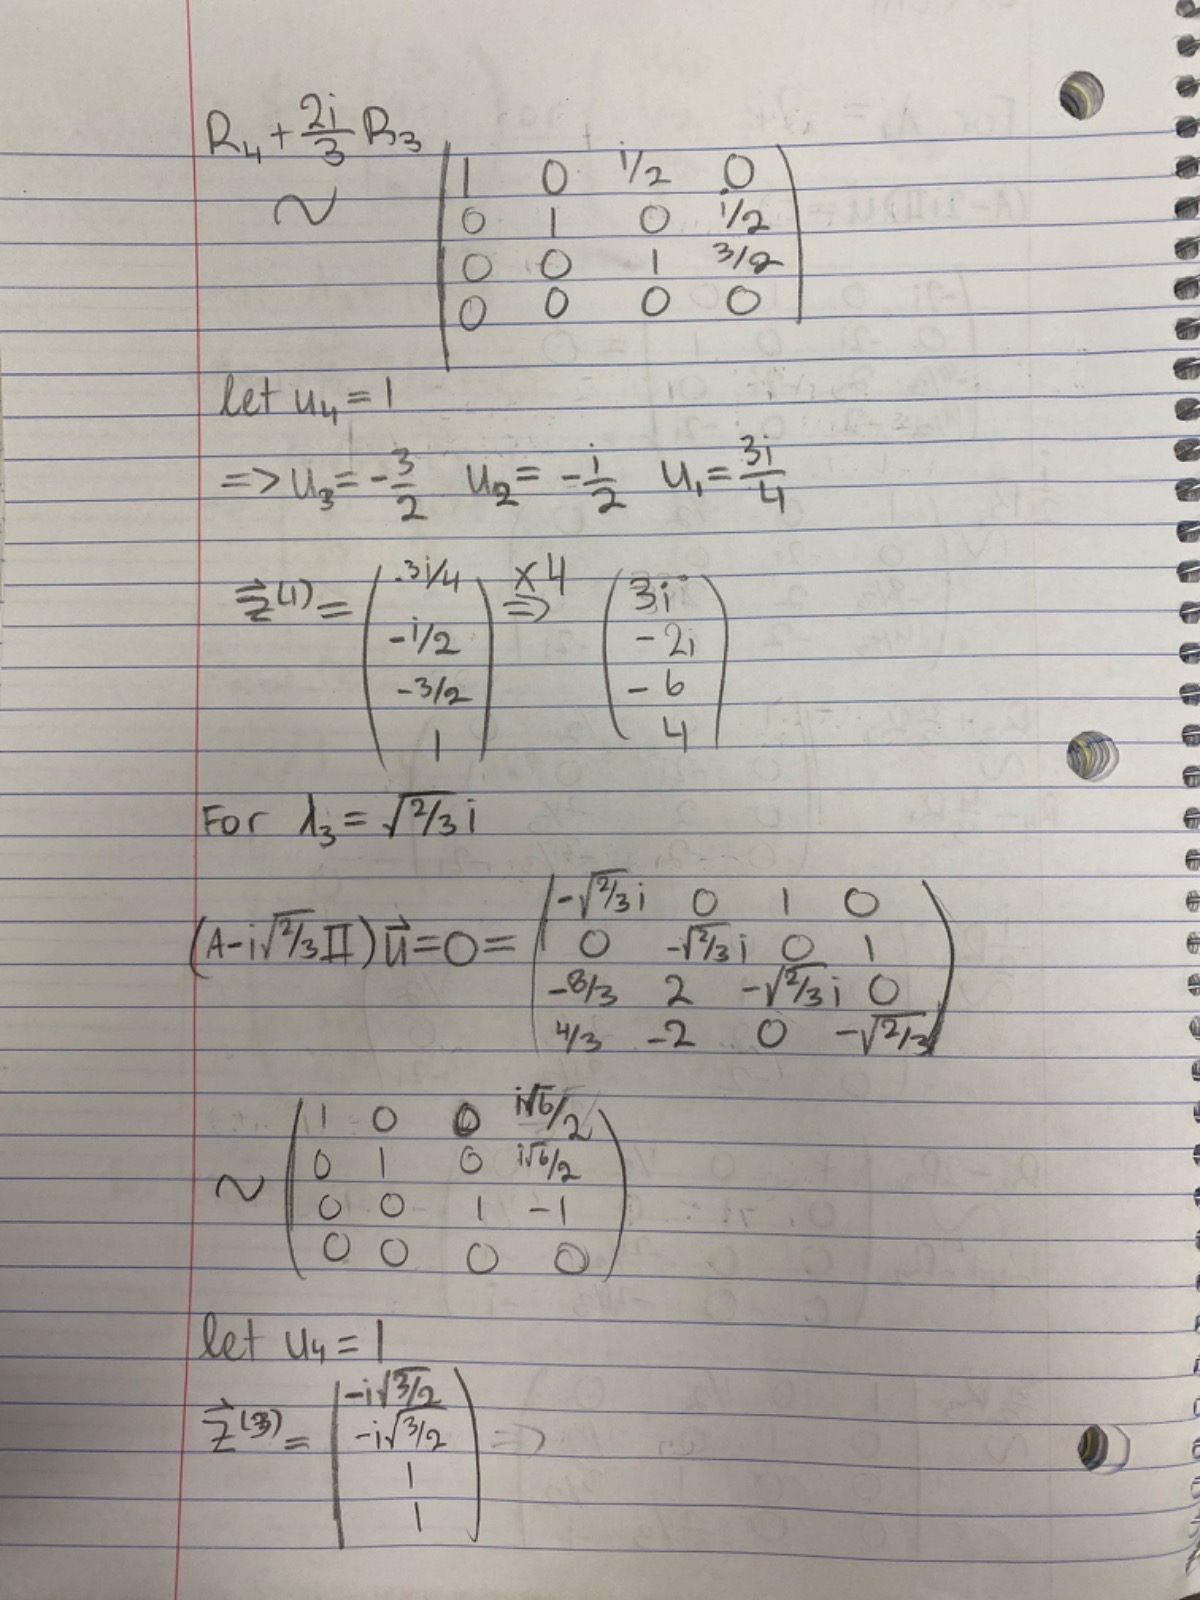 R₄ + 2i/3 R₃
~ ( 1 0 i/2 0
0 1 0 i/2
0 0 1 3/2
0 0 0 0 )
let u₄ = 1
=> u₃ = -3/2 u₂ = -i/2 u₁ = 3i/4
z⃗⁽¹⁾ = ( 3i/4 ×4 => ( 3i
-i/2 -2i
-3/2 -6
1 ) 4 )
For λ₃ = √2/3 i
(A - i√2/3 II) u⃗ = 0 = ( -√2/3 i 0 1 0
0 -√2/3 i 0 1
-8/3 2 -√2/3 i 0
4/3 -2 0 -√2/3 )
~ ( 1 0 0 i√6/2
0 1 0 i√6/2
0 0 1 -1
0 0 0 0 )
let u₄ = 1
z⃗⁽³⁾ = ( -i√3/2
-i√3/2
1
1 )